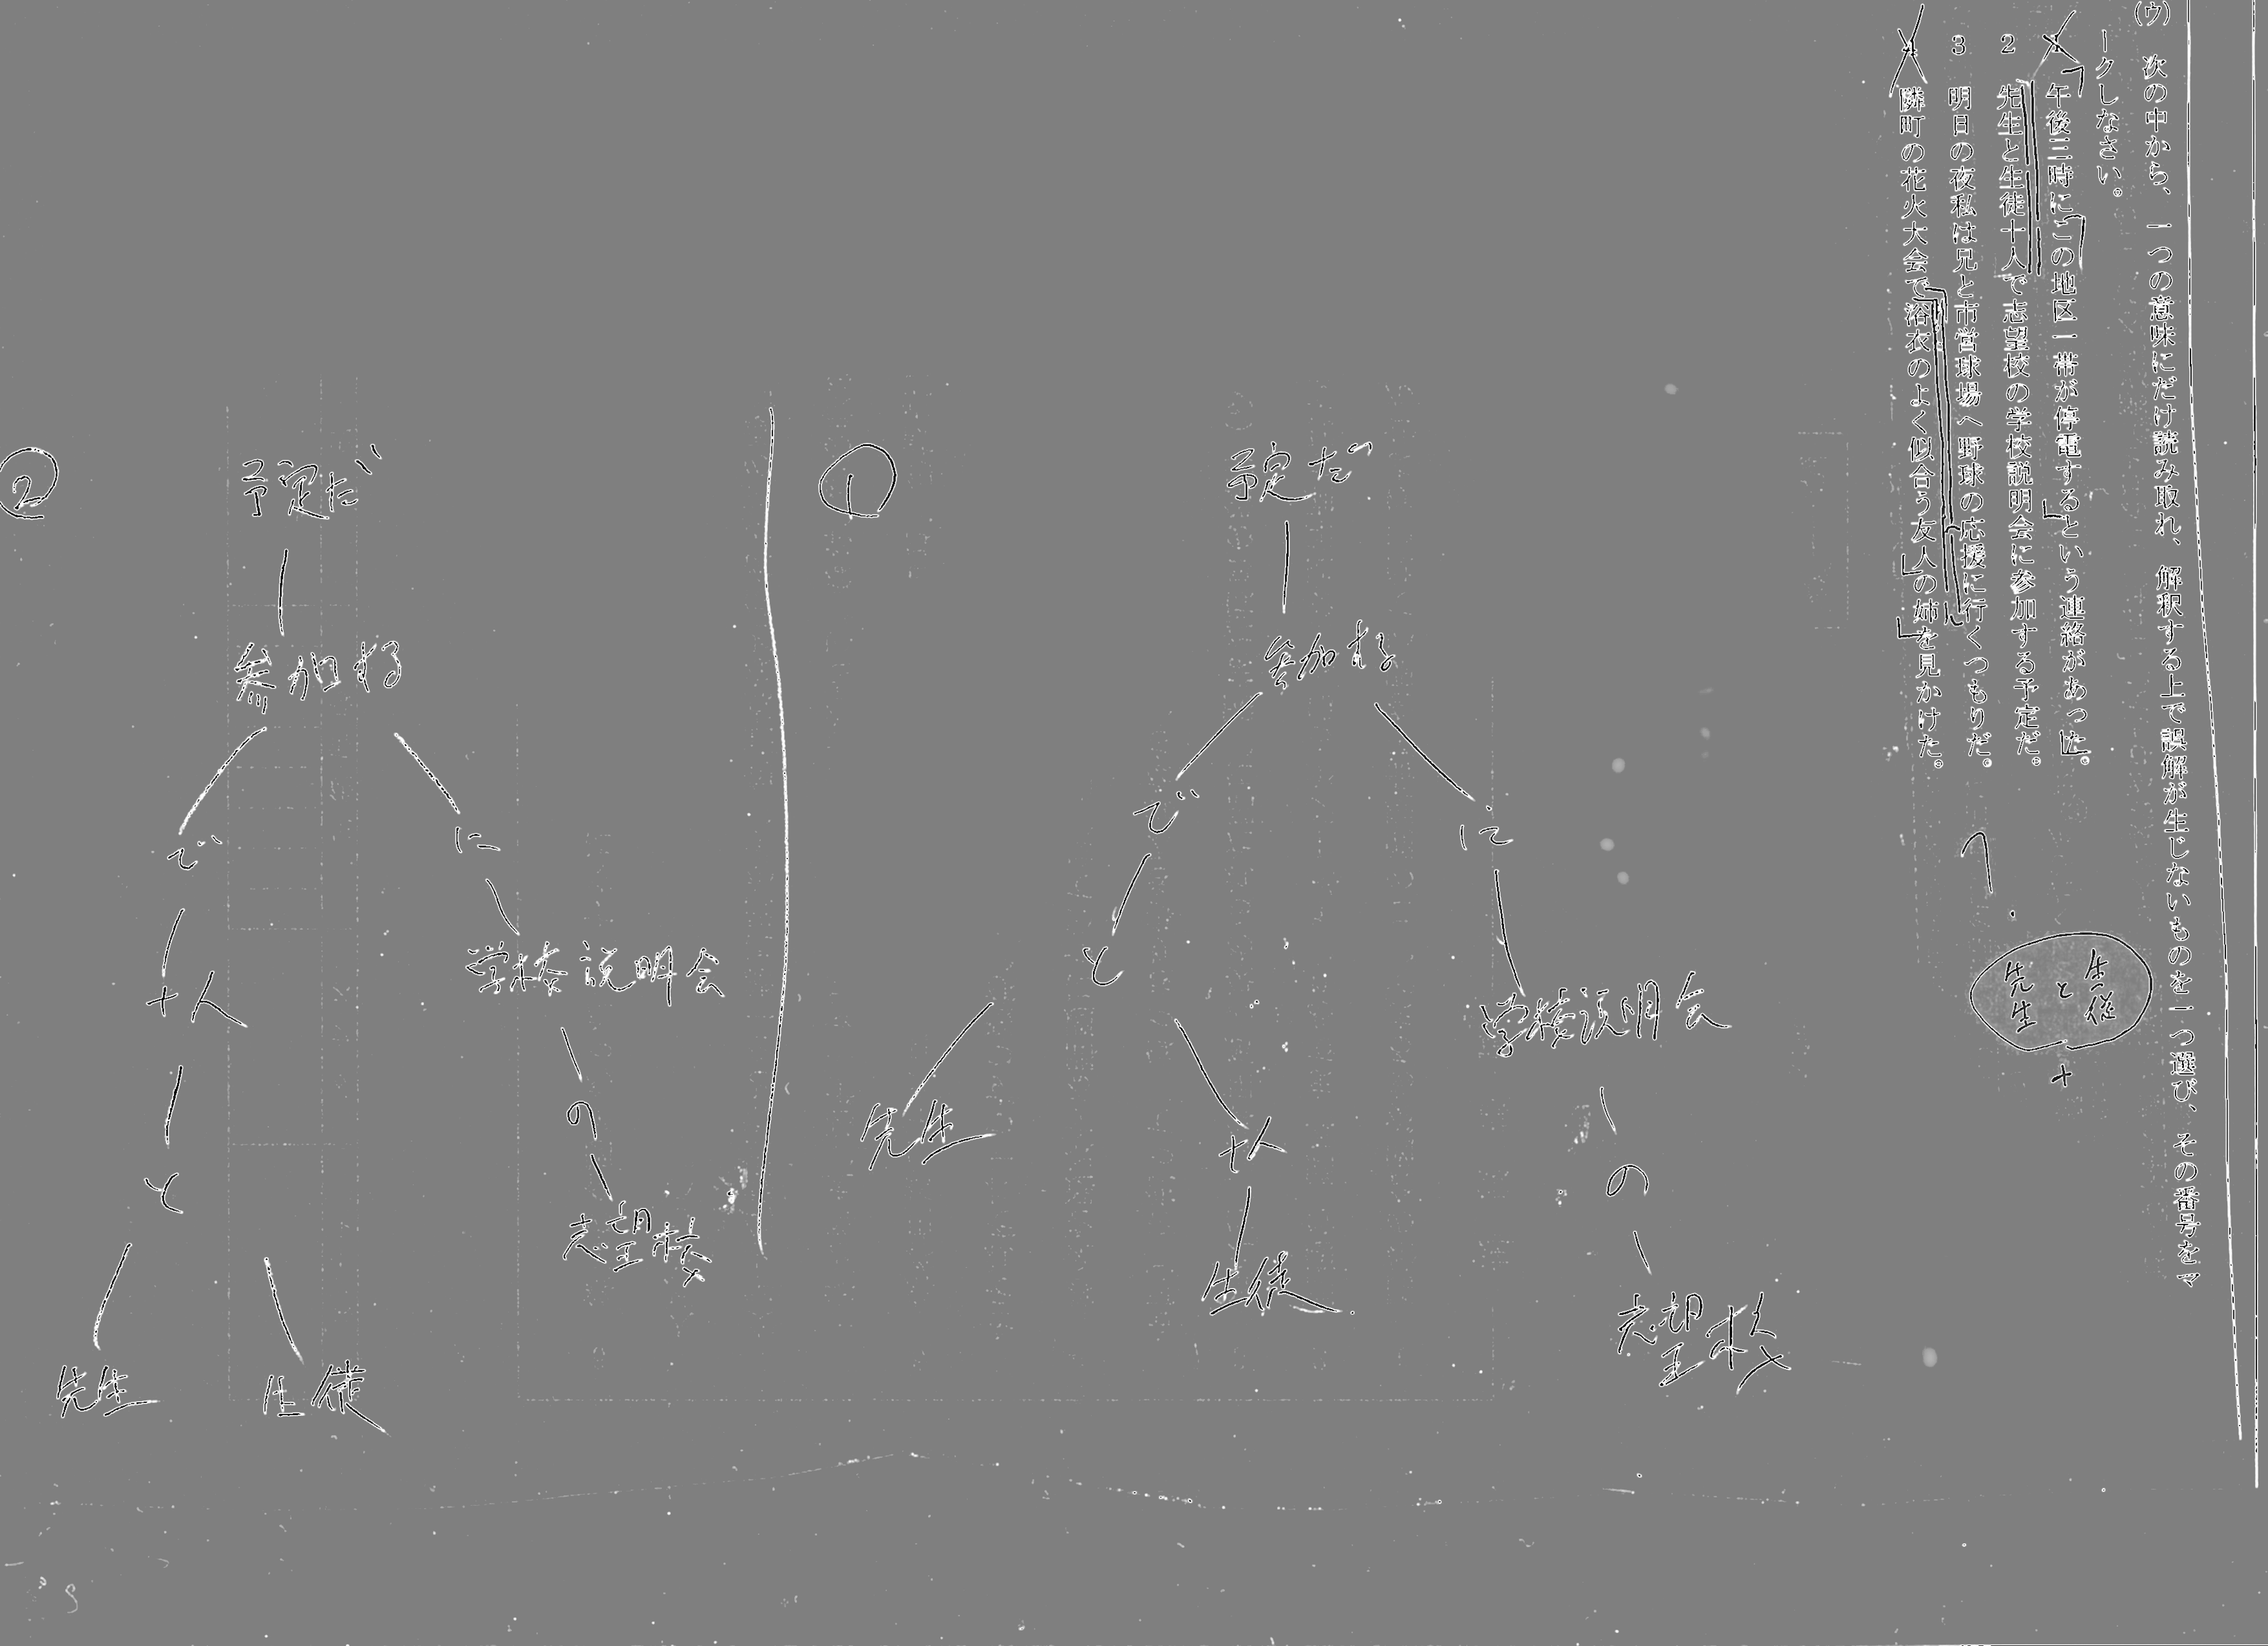 (ウ) 次の中から、一つの意味にだけ読み取れ、解釈する上で誤解が生じないものを一つ選び、その番号をマ
ークしなさい。
1 午後三時にこの地区一帯が停電するという連絡があった。
2 先生と生徒十人で志望校の学校説明会に参加する予定だ。
3 明日の夜私は兄と市営球場へ野球の応援に行くつもりだ。
4 隣町の花火大会で浴衣のよく似合う友人の姉を見かけた。
生徒
と
先生
+
①
予定だ
参加する
で
に
と
学校説明会
先生
十人
の
生徒
志望校
②
予定だ
参加する
で
に
十人
学校説明会
と
の
志望校
先生
生徒